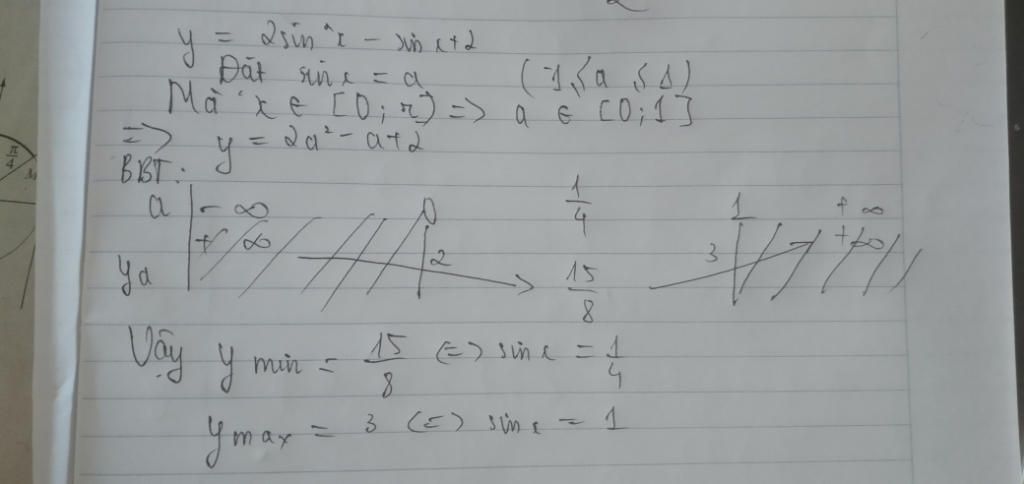 y = 2sin²x - sin x + 2
Đặt sin x = a (-1 ≤ a ≤ 1)
Mà x ∈ [0; π) => a ∈ [0; 1]
=> y = 2a² - a + 2
BBT:
a -∞ 0 1/4 1 +∞
ya +∞ 2 15/8 3 +∞
Vậy y min = 15/8 (=) sin x = 1/4
y max = 3 (=) sin x = 1
π/4
M